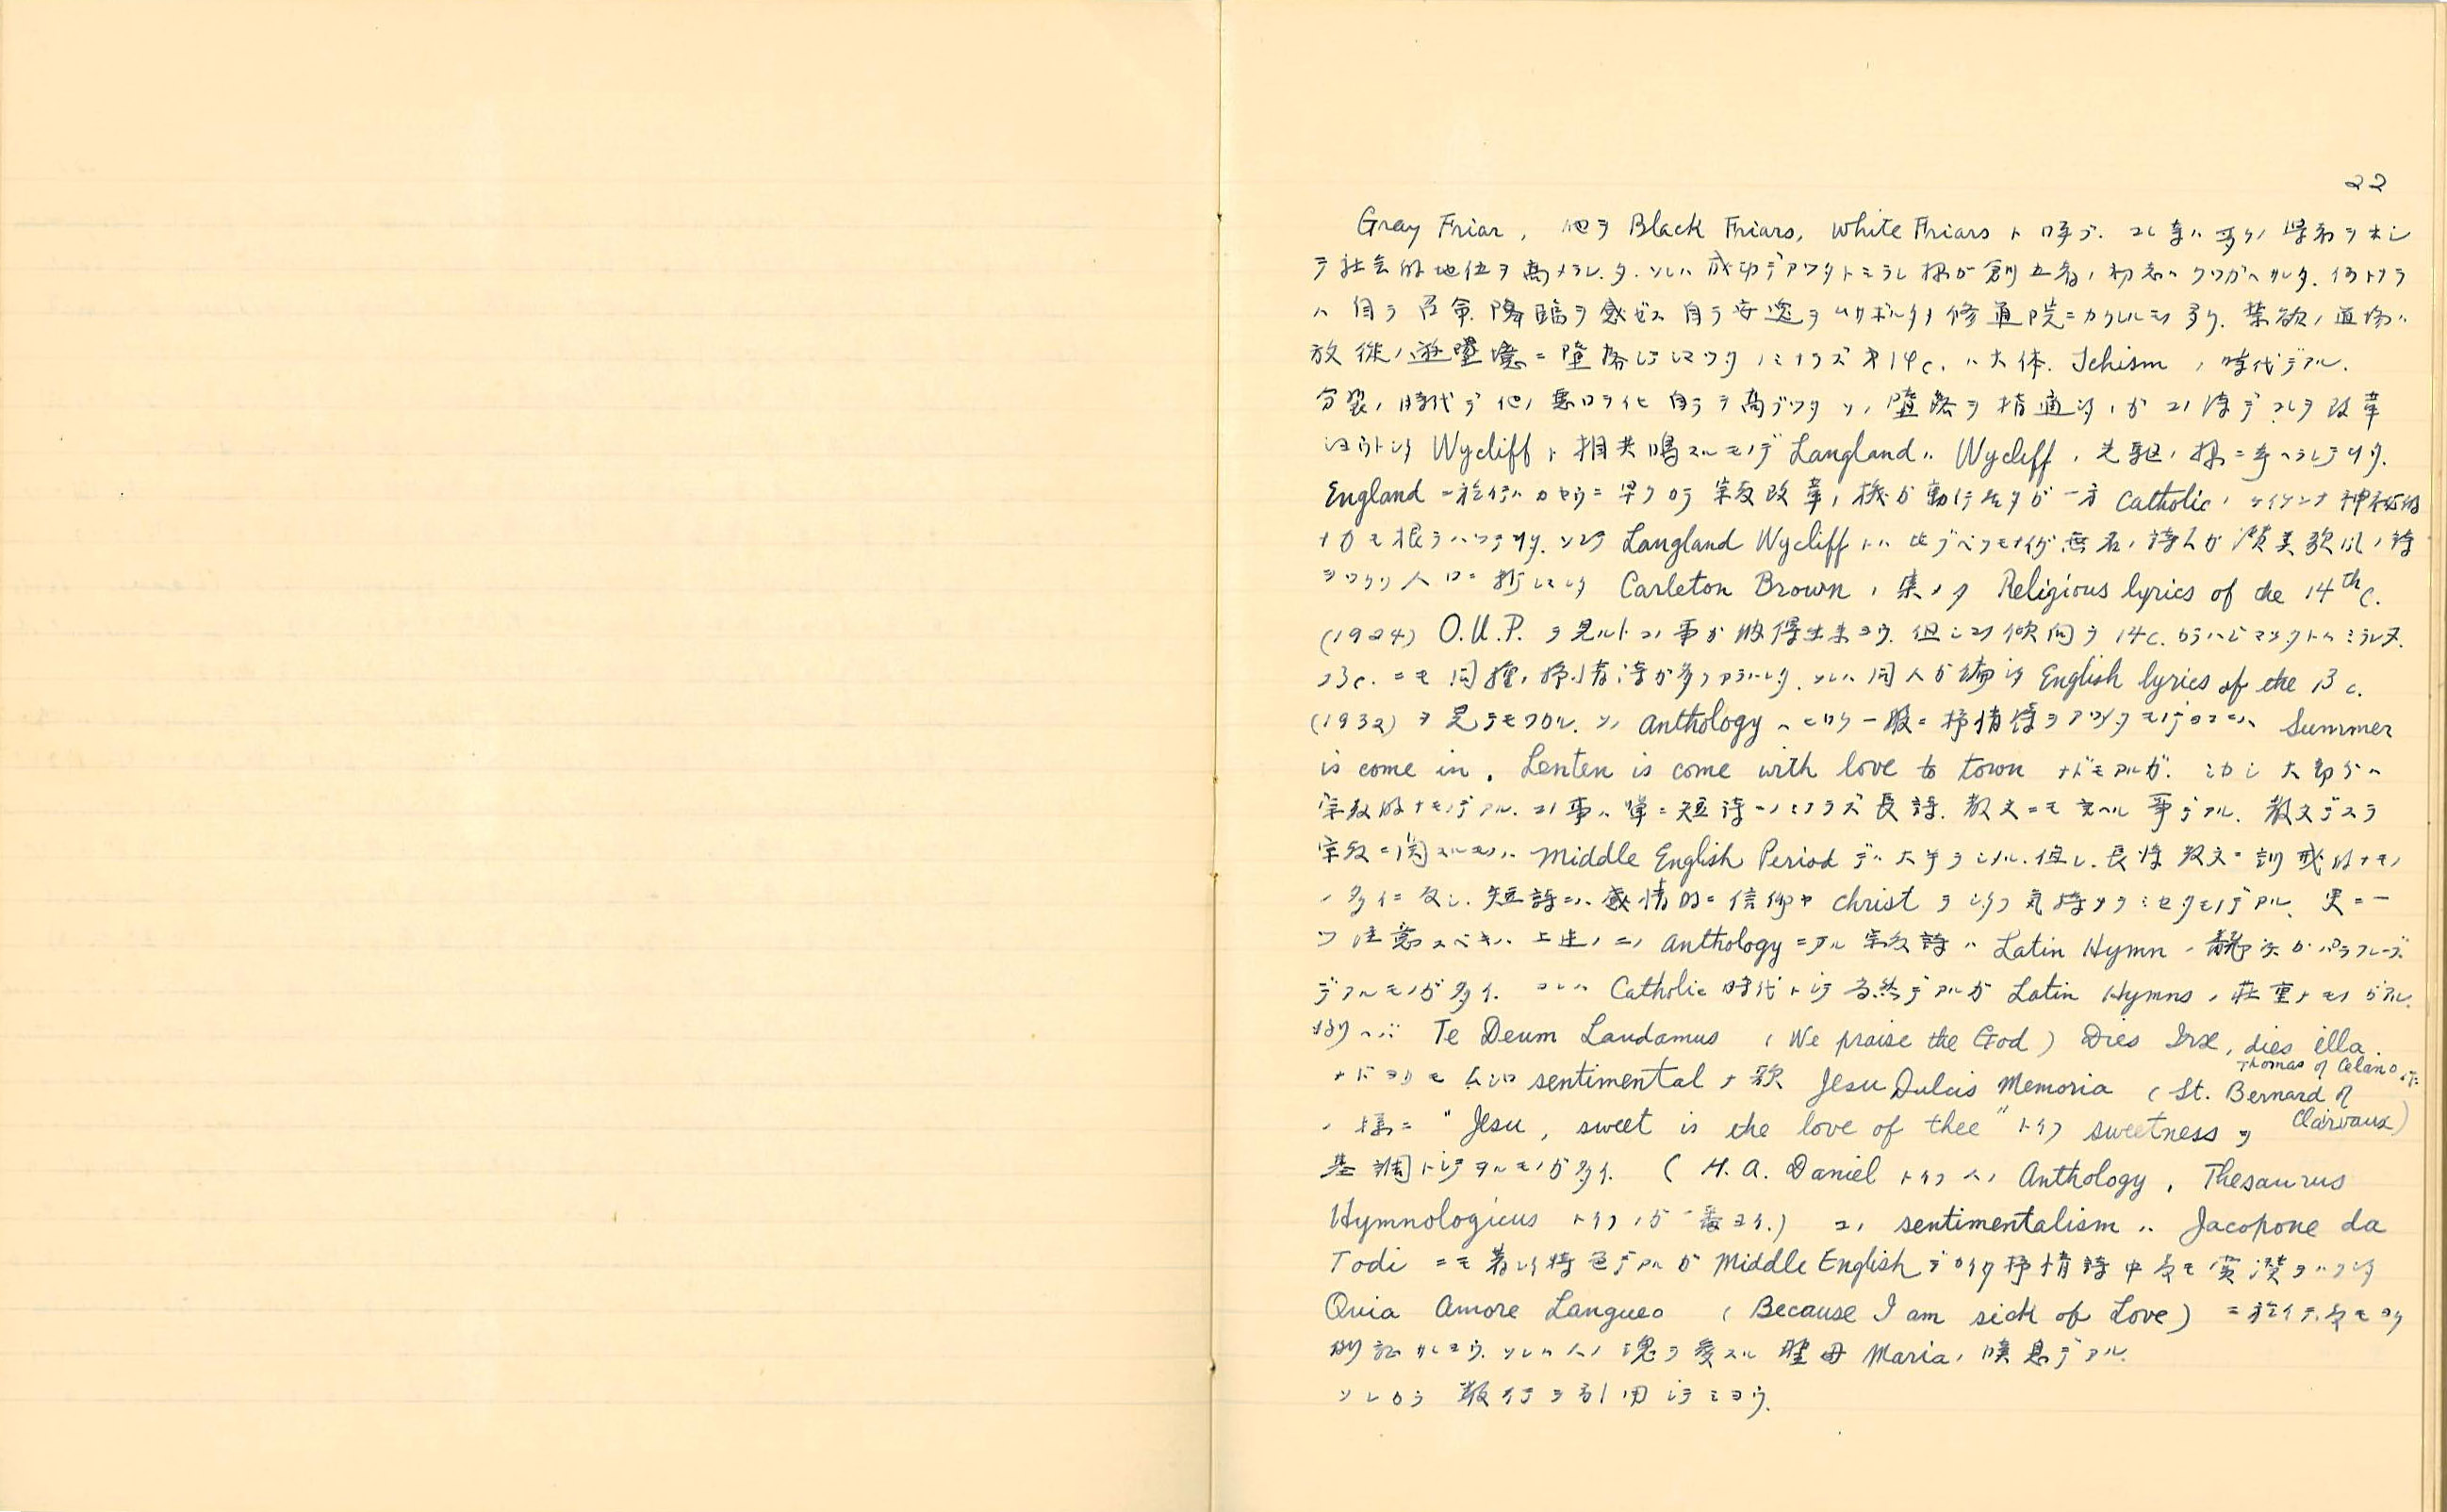 22
Gray Friar, 他ヲ Black Friars, White Friars ト呼ブ. コレ等ハ多クノ
テ社会的地位ヲ高メラレタ. ソレハ成功デアツタトミラレ様ガ創立者ノ初志ハ
ハ自ラ召命降臨ヲ感ゼズ自ラ安逸ヲムサボルタメ修道院ニカクレルモノ多ク. 禁欲ノ道場ハ
放従ノ遊堕境ニ堕落シテシマツタノミナラズ 14c. ハ大体. Schism ノ時代デアル.
分裂ノ時代デ他ノ悪口ヲ 自ラヲ高ブツタ ソノ堕落ヲ指適シタノガコノ詩デコレヲ改革
シヨウトシタ Wycliff ト相共鳴スルモノデ Langland ハ Wycliff ノ先駆ノ様ニ考ヘラレテヰタ.
England ニ於テハカヤウニ早クカラ宗教改革ノ機ガ動イテヰタガ一方 Catholic ノ 神秘的
ナ力モ根ヲハツテヰタ. ソシテ Langland Wycliff トハ比ブベクモナイガ無名ノ詩人ガ讃美歌風ノ詩
ヲツクリ人口ニ Carleton Brown ノ集メタ Religious lyrics of the 14th c.
(1924) O.U.P. ヲ見ルトコノ事ガ納得出来ヨウ. 但シコノ傾向ヲ 14c. カラハジマツタトハミラレヌ.
13c. ニモ同種ノ抒情詩ガ多クアラハレタ. ソレハ同人ガ編シタ English lyrics of the 13 c.
(1932) ヲ見テモワカル. ソノ Anthology ハヒロク一般ニ抒情詩ヲアツメタモノデ Summer
is come in. Lenten is come with love to town ナドモアルガ. シカシ大部分ハ
宗教的ナモノデアル. コノ事ハ単ニ短詩ノミナラズ長詩. 散文ニモ言ヘル事デアル. 散文デスラ
宗教ニ関スルモノハ Middle English Period デハ大半ヲシメル. 但シ. 長詩散文ニ訓戒的ナモノ
ノ多イニ反シ. 短詩ニハ感情的ニ信仰ヤ Christ ヲシタフ気持ヲウタヒセタモノデアル. 更ニ一
ツ注意スベキハ上述ノ二ノ Anthology ニアル宗教詩ハ Latin Hymn ノ翻訳カパラフレーズ
デアルモノガ多イ. コレハ Catholic 時代トシテ当然デアルガ Latin Hymns ノ荘重ナモノガアル.
例ヘバ Te Deum Laudamus (We praise the God) Dies Iræ, dies illa.
Thomas of Celano 作
ナドヨリモムシロ sentimental ナ歌 Jesu Dulcis Memoria (St. Bernard of
Clairvaux)
ノ様ニ "Jesu, sweet is the love of thee" トイフ sweetness ヲ
基調トシテヰルモノガ多イ. (H.A. Daniel トイフ人ノ Anthology, Thesaurus
Hymnologicus トイフノガ一番ヨイ.) コノ sentimentalism ハ Jacopone da
Todi ニモ著シイ特色デアルガ Middle English デカイタ抒情詩中最モ賞讃ヲハクシタ
Quia Amore Langueo (Because I am sick of Love) ニ於イテ最モヨク
例証サレヨウ. ソレハ人ノ魂ヲ愛スル聖母 Maria ノ嘆息デアル.
ソレカラ数行ヲ引用シテミヨウ.